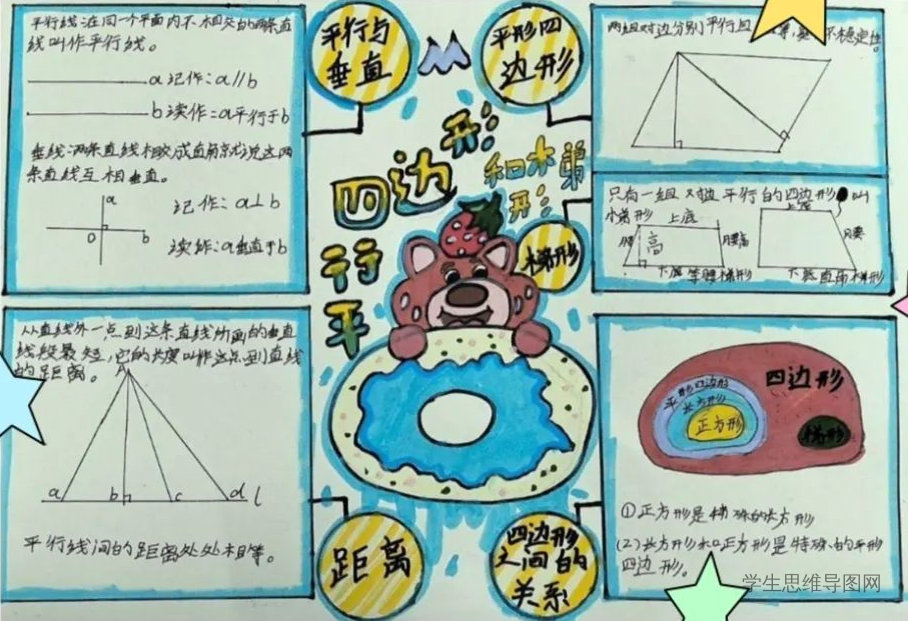 平行线:在同一个平面内不相交的两条直
线叫作平行线。
a 记作:a∥b
b 读作:a平行于b
垂线:两条直线相交成直角就说这两
条直线互相垂直。
a
记作:a⊥b
O
b
读作:a垂直于b
平行与
垂直
平形四
边形
两组对边分别平行且
不稳定性。
四边形
和木弟
形:
平行
梯形
只有一组对边平行的四边形
叫
梯形
上底
上底
腰
高
腰
高
腰
下底
等腰梯形
下底
直角梯形
从直线外一点到这条直线所画的垂直
线段最短,它的长度叫作这点到直线
的距离。
A
a
b
c
d
l
平行线间的距离处处相等。
距离
四边形
之间的
关系
四边形
平形四边形
长方形
正方形
梯形
①正方形是特殊的长方形
(2)长方形和正方形是特殊的平形
四边形。
学生思维导图网